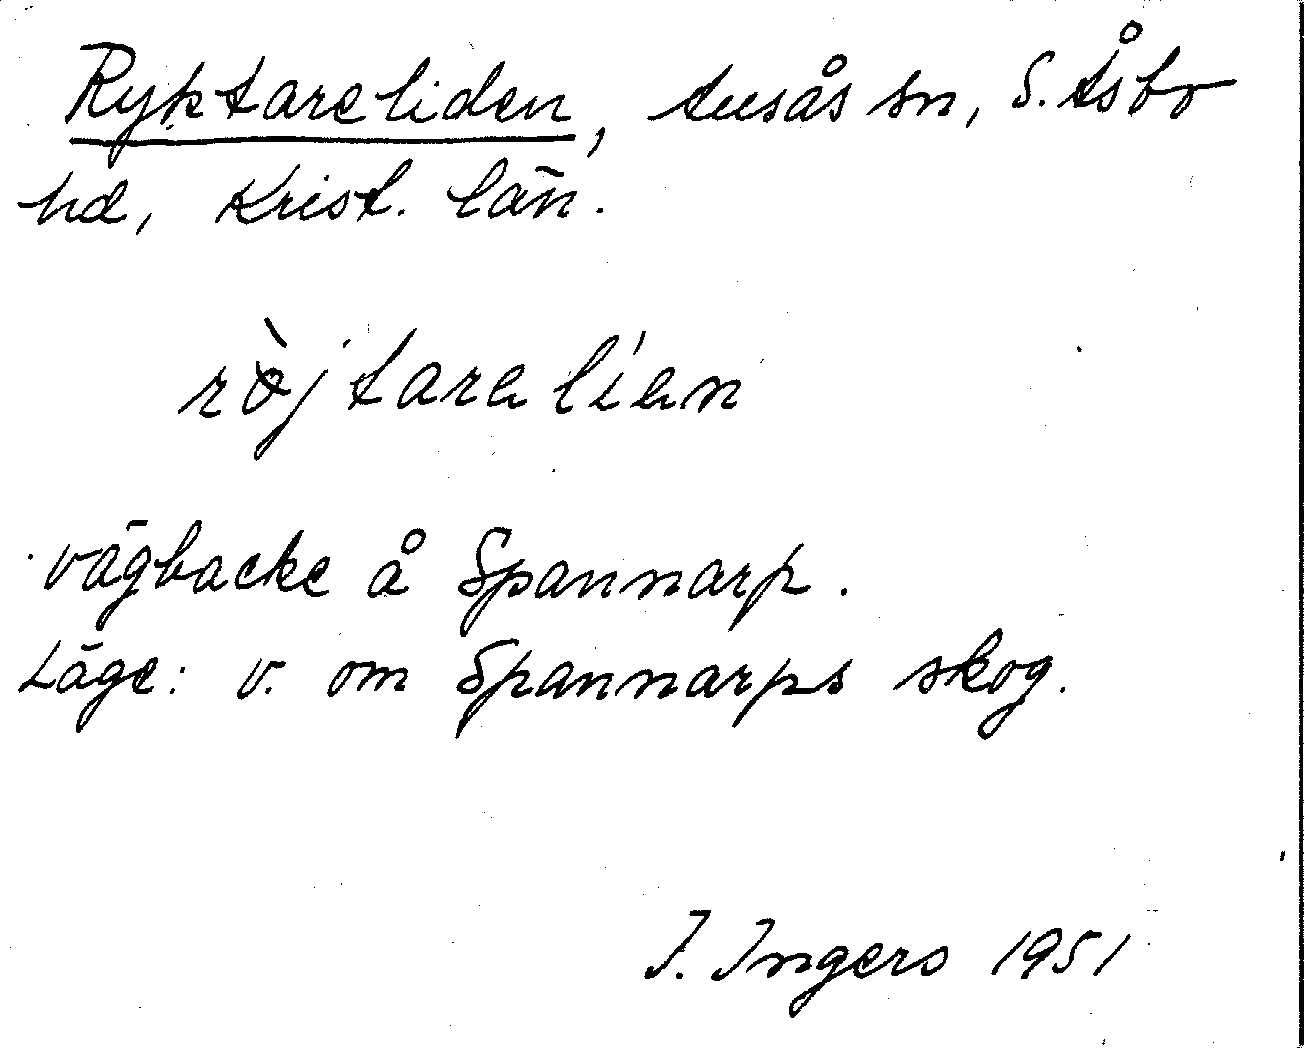 Ryktareliden, Ausås sn, S. Åsbo
hd, Krist. län.
rö̀jtarəlíən
vägbacke å Spannarp.
Läge: v. om Spannarps skog.
I. Ingers 1951